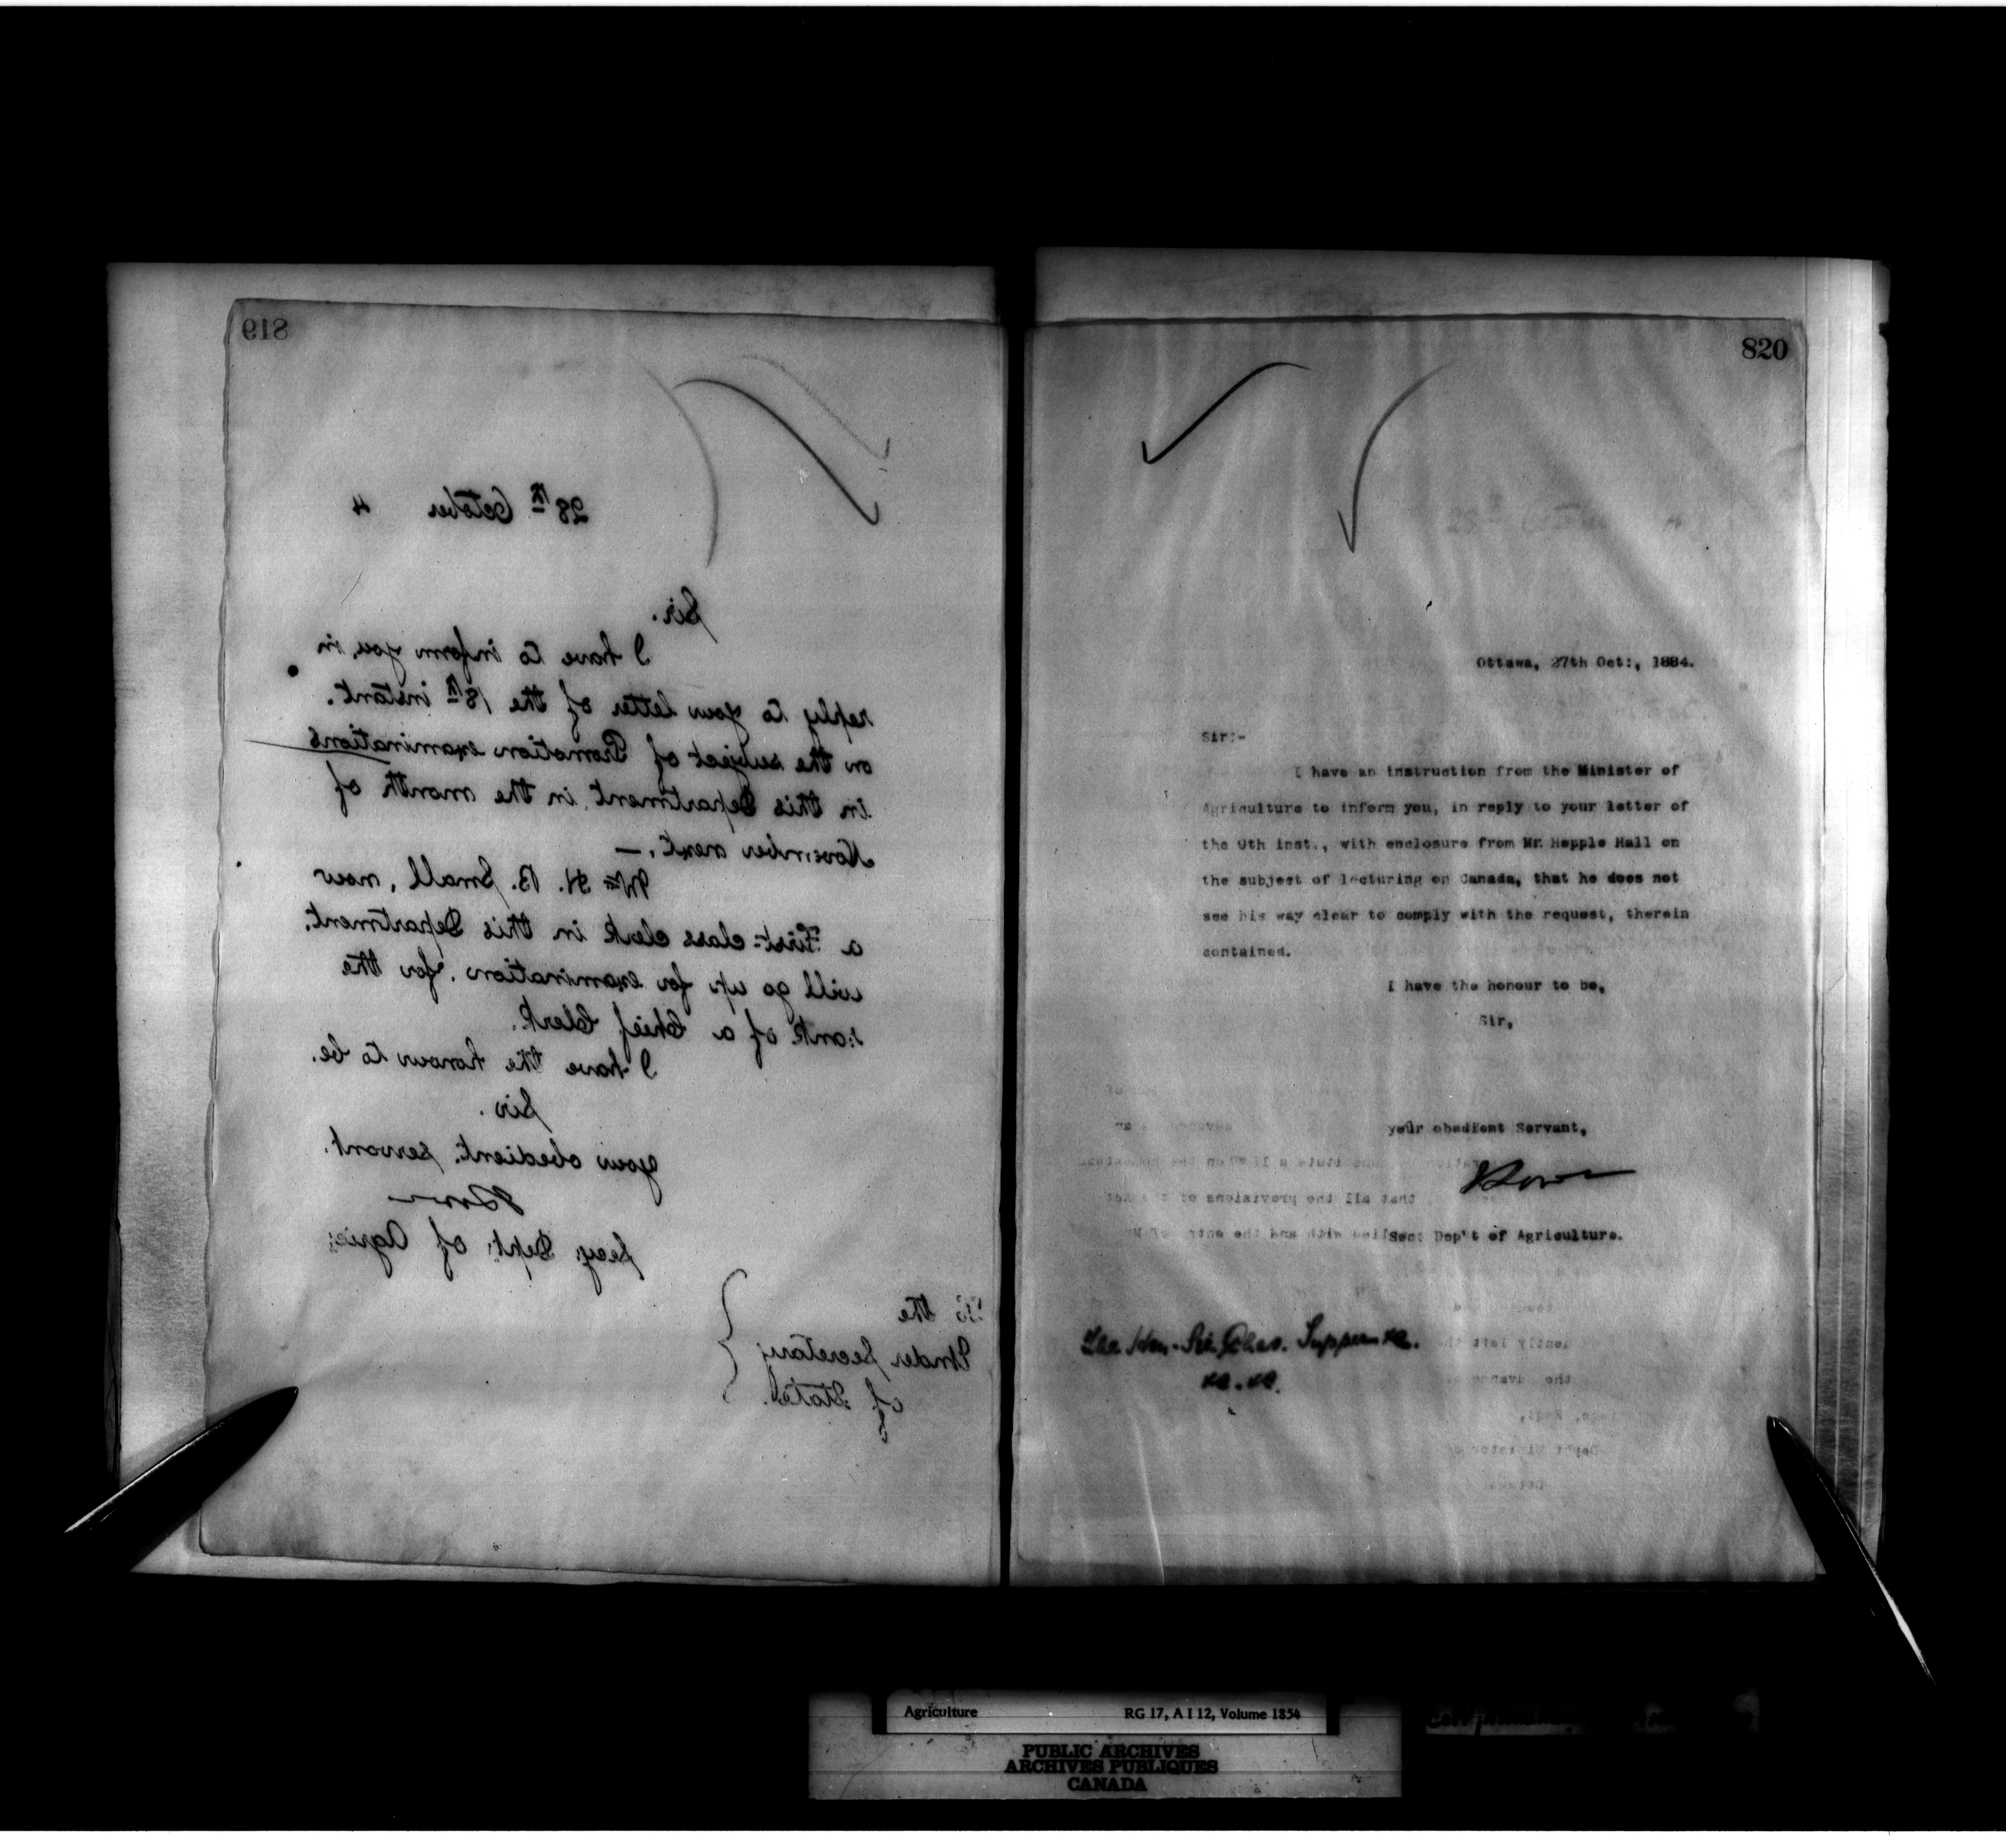 819
28th October 4
Sir.
I have to inform you, in
reply to your letter of the 18th instant.
on the subject of Promotion examinations
in this Department, in the month of
November next. —
Mr H. B. Small, now
a First-class clerk in this Department.
will go up for examination, for the
rank of a Chief Clerk.
I have the honour to be.
Sir.
your obedient. servant.
Secy. Dept: of Agric:
To the
Under Secretary
of State.
820
28th October 4
Ottawa, 27th Oct:, 1884.
Sir:-
I have an instruction from the Minister of
Agriculture to inform you, in reply to your letter of
the 9th inst., with enclosure from Mr. Hepple Hall on
the subject of lecturing on Canada, that he does not
see his way clear to comply with the request, therein
contained.
I have the honour to be,
Sir,
your obedient Servant,
Sec: Dep't of Agriculture.
The Hon. Sir Chas. Tupper &c.
&c. &c.
Agriculture RG 17, A I 12, Volume 1854
PUBLIC ARCHIVES
ARCHIVES PUBLIQUES
CANADA